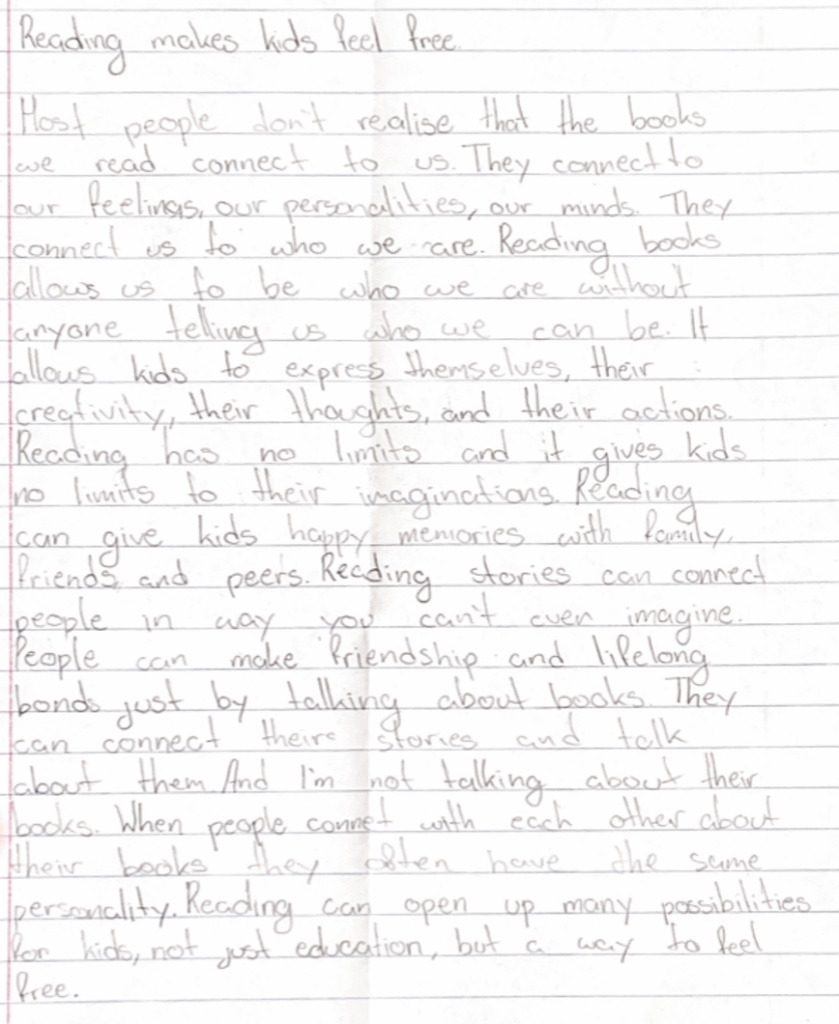 Reading makes kids feel free.
Most people don't realise that the books
we read connect to us. They connect to
our feelings, our personalities, our minds. They
connect us to who we are. Reading books
allows us to be who we are without
anyone telling us who we can be. It
allows kids to express themselves, their
creativity, their thoughts, and their actions.
Reading has no limits and it gives kids
no limits to their imaginations. Reading
can give kids happy memories with family,
friends and peers. Reading stories can connect
people in way you can't even imagine.
People can make friendship and lifelong
bonds just by talking about books. They
can connect theire stories and talk
about them. And I'm not talking about their
books. When people connet with each other about
their books they often have the same
personality. Reading can open up many possibilities
for kids, not just education, but a way to feel
free.